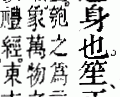 身也笙
匏之爲
家萬物
禮經東